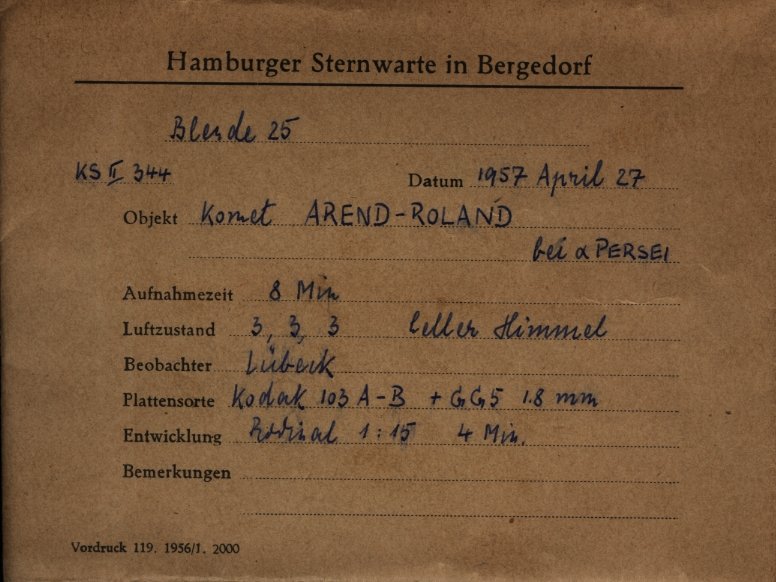 Hamburger Sternwarte in Bergedorf
Blende 25
KS II 344 Datum 1957 April 27
Objekt Komet AREND-ROLAND
bei α PERSEI
Aufnahmezeit 8 Min
Luftzustand 3, 3, 3 heller Himmel
Beobachter Lübeck
Plattensorte Kodak 103 A-B + GG5 1.8 mm
Entwicklung Rodinal 1:15 4 Min.
Bemerkungen
Vordruck 119. 1956/1. 2000